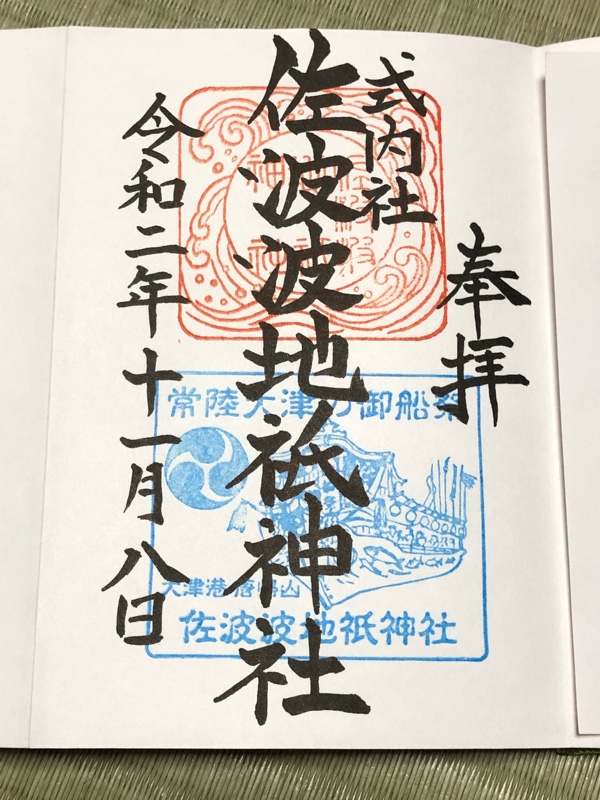 奉拝
式内社
佐波波地祇神社
令和二年十一月八日
常陸大津の御船祭
大津港 唐帰山
佐波波地祇神社